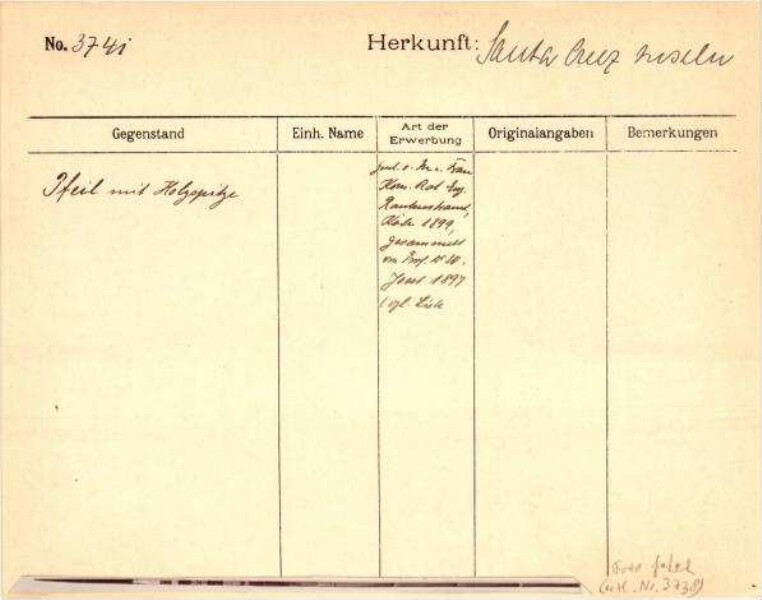 No. 374i
Herkunft: Santa Cruz Inseln
Gegenstand
Einh. Name
Art der
Erwerbung
Originalangaben
Bemerkungen
Pfeil mit Holzspitze
Frau
Kom. Rat Eug.
Rautenstrauch,
Köln 1899,
gesammelt
von Prof. Dr. W.
Joest 1897
(vgl. Liste
Foto fehlt
Nr. 3738)